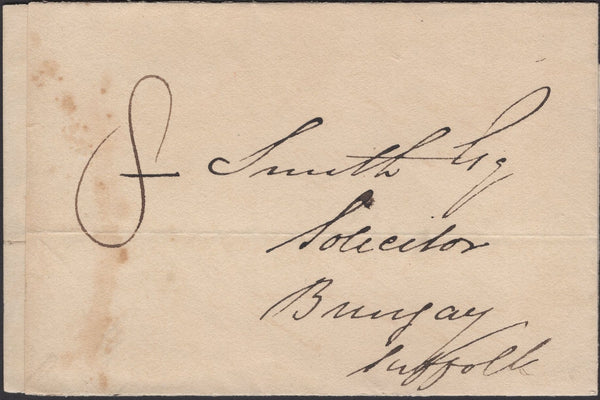 8 — Smith Esq
Solicitor
Bungay
Suffolk